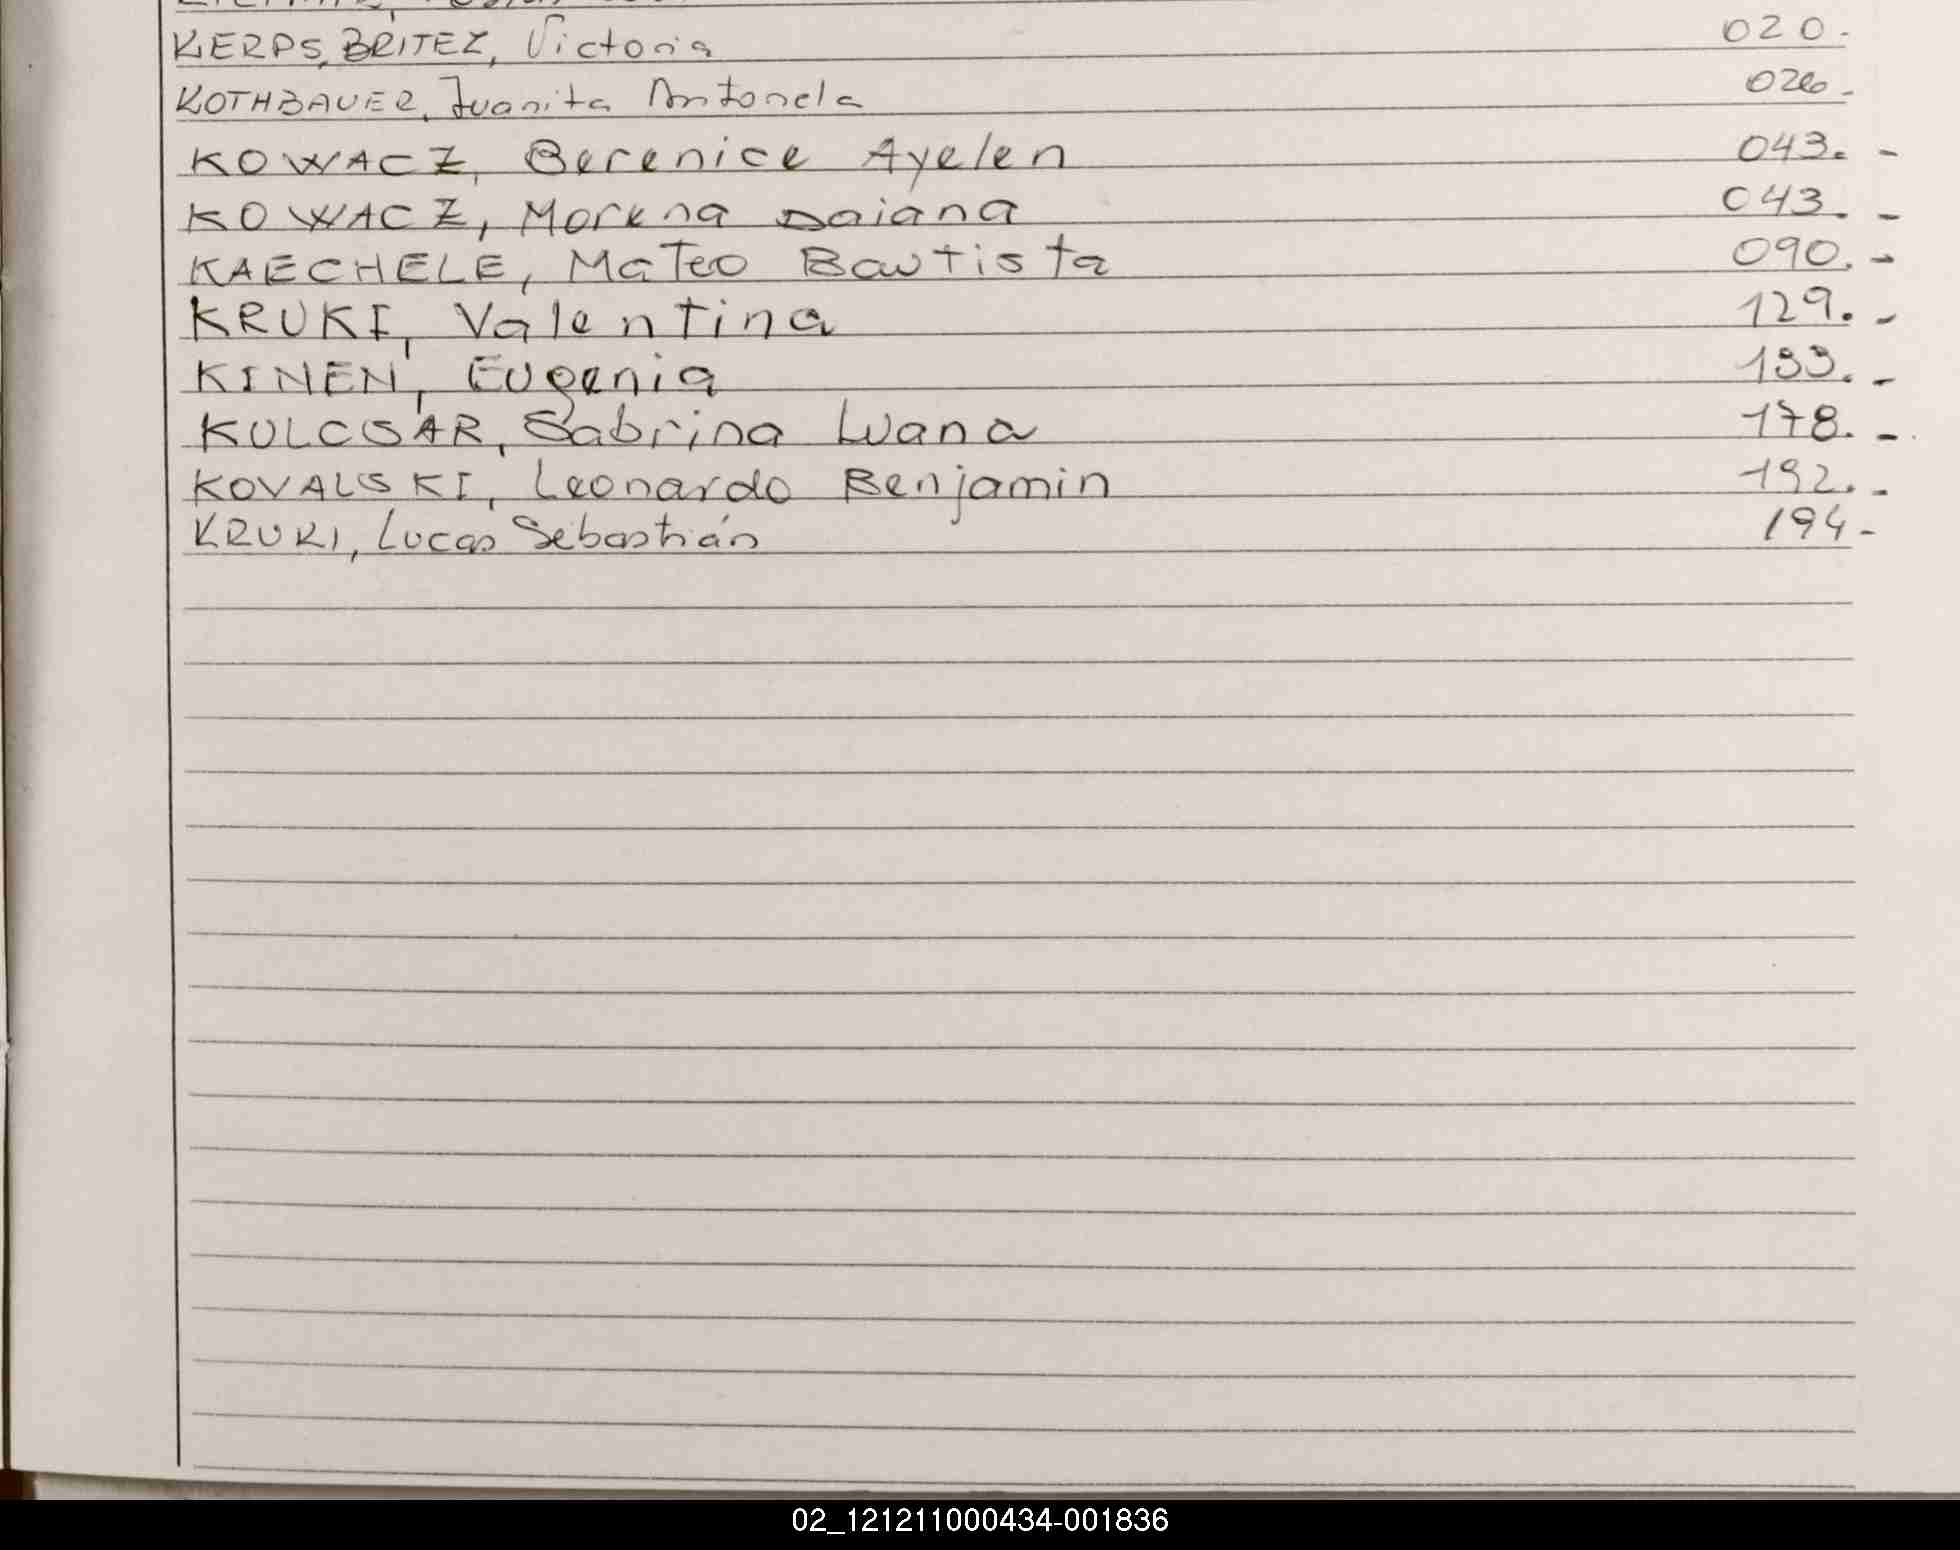 KERPS, BRITEZ, Victoria 020.
KOTHBAUER, Juanita Antonela 026.
KOWACZ, Berenice Ayelen 043. -
KOWACZ, Morena Daiana 043. -
KAECHELE, Mateo Bautista 090. -
KRUKI, Valentina 129. -
KINEN, Eugenia 133. -
KULCSAR, Sabrina Luana 178. -
KOVALSKI, Leonardo Benjamin 192. -
KRUKI, Lucas Sebastián 194 -
02_121211000434-001836